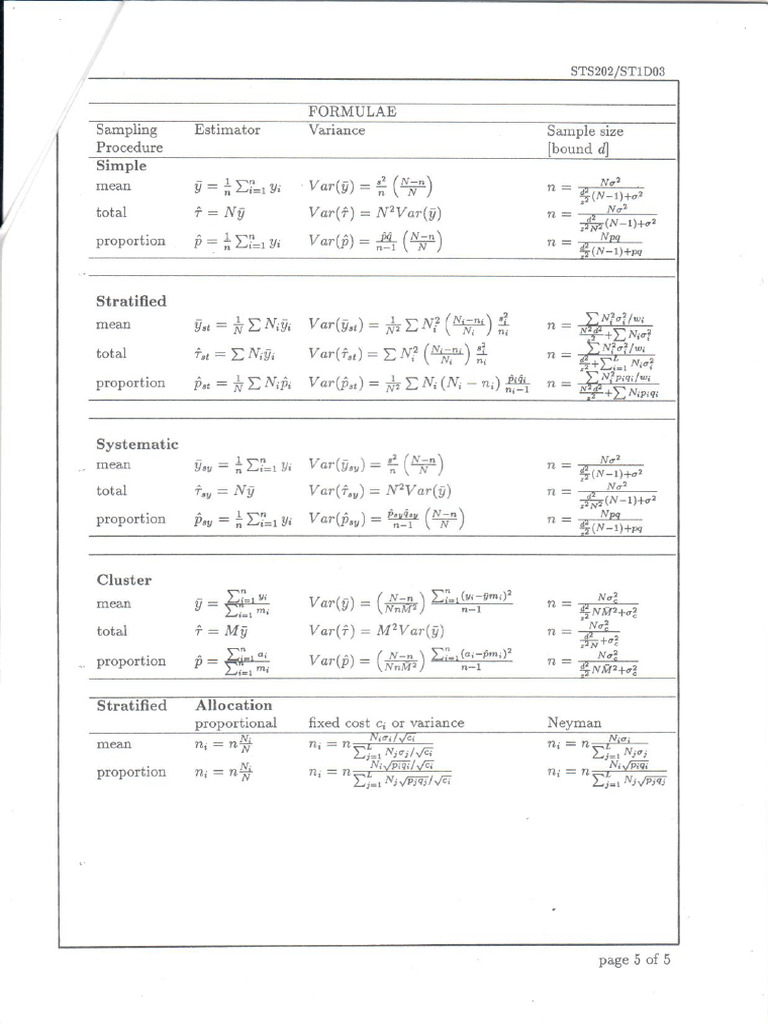 STS202/ST1D03
FORMULAE
Sampling Procedure Estimator Variance Sample size [bound d]
Simple
mean ȳ = 1/n ∑_{i=1}^{n} y_i Var(ȳ) = s²/n ((N−n)/N) n = Nσ² / (d²/z² (N−1)+σ²)
total τ̂ = Nȳ Var(τ̂) = N²Var(ȳ) n = Nσ² / (d²/(z²N²) (N−1)+σ²)
proportion p̂ = 1/n ∑_{i=1}^{n} y_i Var(p̂) = p̂q̂/(n−1) ((N−n)/N) n = Npq / (d²/z² (N−1)+pq)
Stratified
mean ȳ_st = 1/N ∑ N_iȳ_i Var(ȳ_st) = 1/N² ∑ N_i² ((N_i−n_i)/N_i) s_i²/n_i n = ∑ N_i²σ_i²/w_i / (N²d²/z² + ∑ N_iσ_i²)
total τ̂_st = ∑ N_iȳ_i Var(τ̂_st) = ∑ N_i² ((N_i−n_i)/N_i) s_i²/n_i n = ∑ N_i²σ_i²/w_i / (d²/z² + ∑_{i=1}^{L} N_iσ_i²)
proportion p̂_st = 1/N ∑ N_ip̂_i Var(p̂_st) = 1/N² ∑ N_i (N_i − n_i) p̂_iq̂_i/(n_i−1) n = ∑ N_i²p_iq_i/w_i / (N²d²/z² + ∑ N_ip_iq_i)
Systematic
mean ȳ_sy = 1/n ∑_{i=1}^{n} y_i Var(ȳ_sy) = s²/n ((N−n)/N) n = Nσ² / (d²/z² (N−1)+σ²)
total τ̂_sy = Nȳ Var(τ̂_sy) = N²Var(ȳ) n = Nσ² / (d²/(z²N²) (N−1)+σ²)
proportion p̂_sy = 1/n ∑_{i=1}^{n} y_i Var(p̂_sy) = p̂_syq̂_sy/(n−1) ((N−n)/N) n = Npq / (d²/z² (N−1)+pq)
Cluster
mean ȳ = ∑_{i=1}^{n} y_i / ∑_{i=1}^{n} m_i Var(ȳ) = ((N−n)/(NnM̄²)) ∑_{i=1}^{n}(y_i−ȳm_i)²/(n−1) n = Nσ_c² / (d²/z² NM̄²+σ_c²)
total τ̂ = Mȳ Var(τ̂) = M²Var(ȳ) n = Nσ_c² / (d²/(z²N) +σ_c²)
proportion p̂ = ∑_{i=1}^{n} a_i / ∑_{i=1}^{n} m_i Var(p̂) = ((N−n)/(NnM̄²)) ∑_{i=1}^{n}(a_i−p̂m_i)²/(n−1) n = Nσ_c² / (d²/z² NM̄²+σ_c²)
Stratified Allocation
proportional fixed cost c_i or variance Neyman
mean n_i = n N_i/N n_i = n N_iσ_i/√c_i / ∑_{j=1}^{L} N_jσ_j/√c_i n_i = n N_iσ_i / ∑_{j=1}^{L} N_jσ_j
proportion n_i = n N_i/N n_i = n N_i√(p_iq_i)/√c_i / ∑_{j=1}^{L} N_j√(p_jq_j)/√c_i n_i = n N_i√(p_iq_i) / ∑_{j=1}^{L} N_j√(p_jq_j)
page 5 of 5